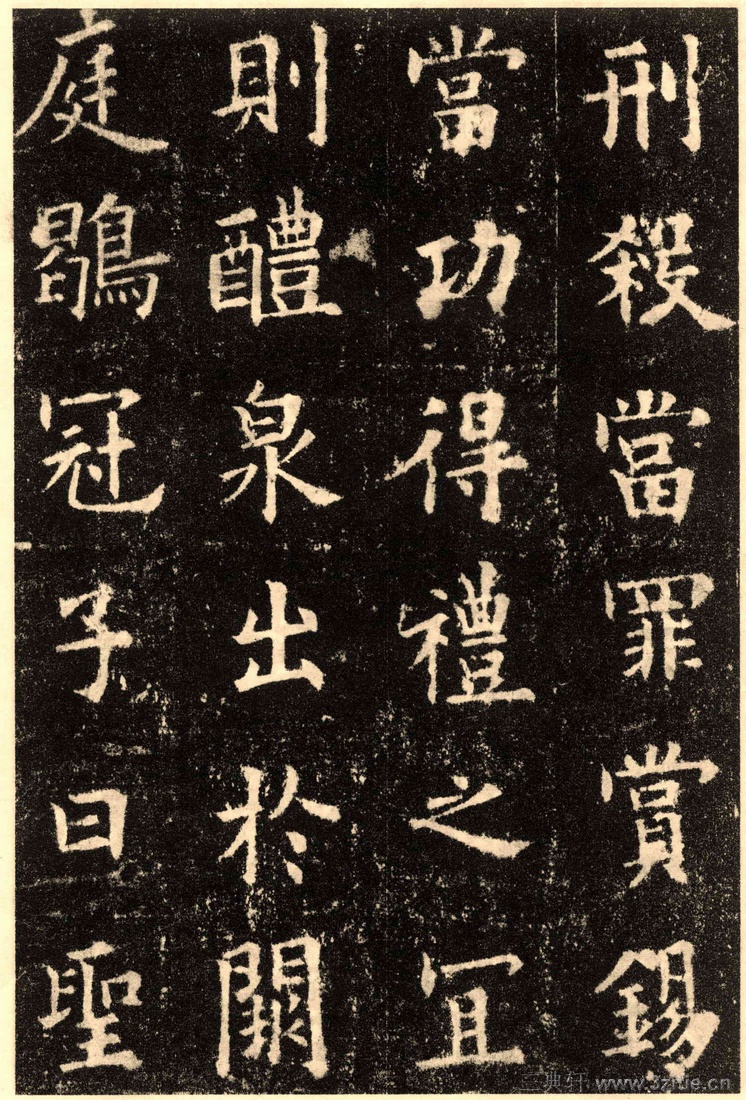 刑殺當罪賞錫
當功得禮之宜
則醴泉出於闕
庭鶡冠子曰聖
三典轩 www.3zitie.cn